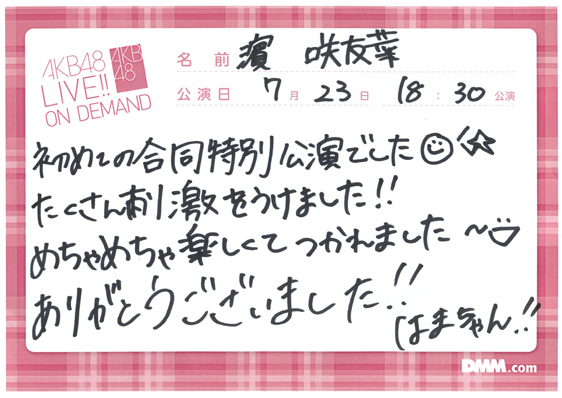 AKB48
LIVE!!
ON DEMAND
AKB
48
名前 濵 咲友菜
公演日 7月23日 18:30公演
初めての合同特別公演でした☺☆
たくさん刺激をうけました!!
めちゃめちゃ楽しくてつかれました~
ありがとうございました!!
はまちゃん!!
DMM.com